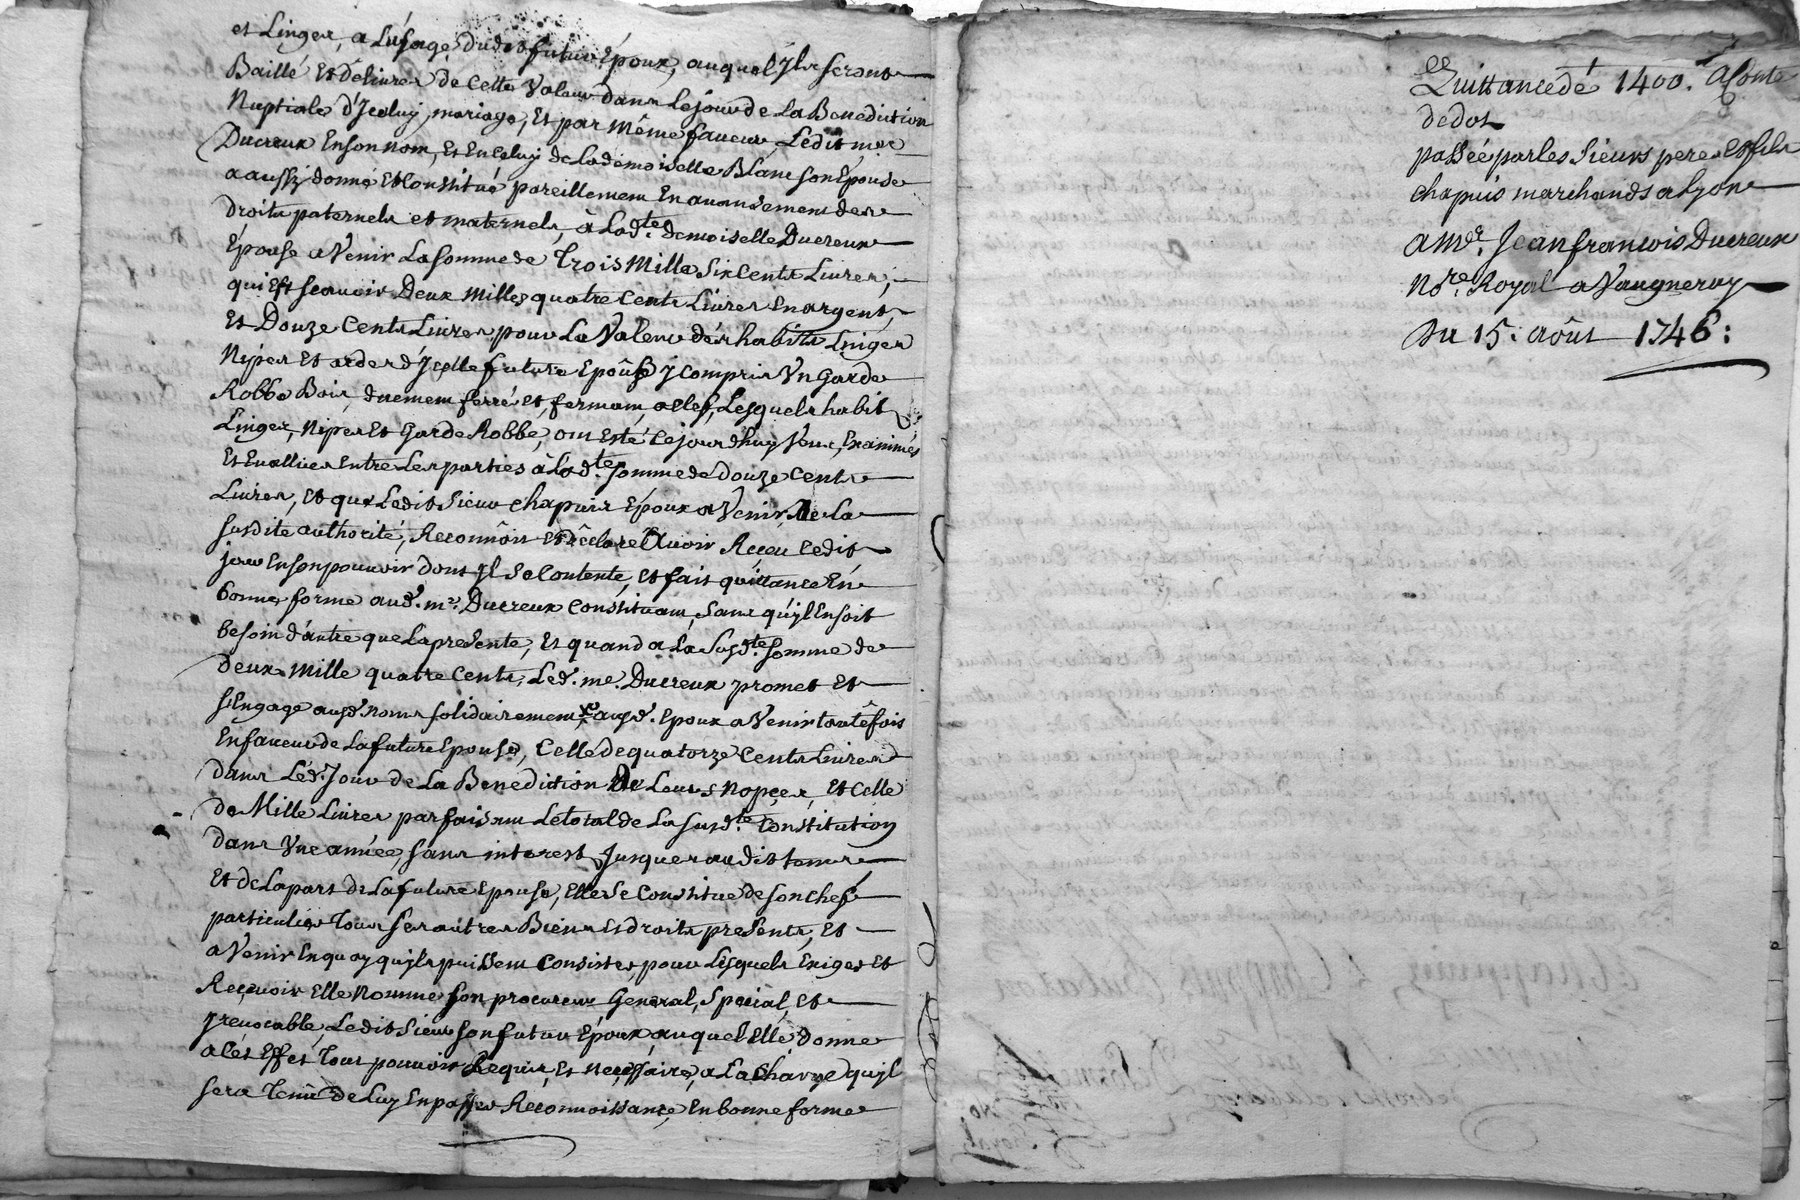 et Linges, a L'usage dudit futur Epoux, auquel Ils seront
Baillé Et Delivres de Cette Valeur dans Le jour de La Benediction
Nuptiale d'Iceluy mariage, Et par Même faveur Ledit mre
Ducreux En son nom, Et En Celuy de Lademoiselle Blanc son Epouse
a aussy donné Et Constitué pareillement En avancement des
droits paternels et maternels, à Lad.te demoiselle Ducreux
Epouse a Venir La somme de Trois Mille Six Cents Livres,
qui Est scavoir Deux Milles quatre Cents Livres En argent,
Et Douze Cents Livres pour La Valeur des habits Linges
Nipes Et ardes d'Icelle future Epouse y Compris Vn Garde
Robbe Bois, duement ferré et fermant a clef, Lesquels habit
Linges, Nipes Et Garde Robbe, ont Esté Cejourdhuy Veus, Examinés
Et Evallues Entre Les parties à Lad.te somme de Douze Cents
Livres, Et que Ledit Sieur Chapuis Epoux a Venir, De La
susdite authorité, Reconnoit Et Déclare Avoir Receu Cedit
jour En son pouvoir dont Il Se Contente, Et fait quittance En
bonne forme aud. mre. Ducreux Constituant, sans qu'yl En soit
besoin d'autre que La presente, Et quand a La Susd.te somme de
deux Mille quatre Cents, Led. me. Ducreux promet Et
s'Engage ausd. noms solidairement aud. Epoux a Venir toutefois
En faveur de La future Epouse, Celle de quatorze Cents Livres
dans Led. Jour de La Benediction De Leurs Nopces, Et Celle
de Mille Livres parfaisant Le total de La susd.te Constitution
dans Vne année, sans interest Jusques audit temps
Et de La part de La future Epouse, Elle Se Constitue de son Chef
particulier Tous Ses autres Biens Et droits presents, Et
a Venir En quoy qu'yls puissent Consister, pour Lesquels Exiger Et
Recevoir Elle Nomme son procureur General, Special, Et
Irevocable, Ledit Sieur son futur Epoux, auquel Elle donne
a Cés Effet Tous pouvoir Requis, Et necessaires, a La Charge qu'yl
sera Tenu de Luy En passer Reconnoissance, En bonne forme
Quittance de 1400.ll a Conte
de dot
passée par les Sieurs pere et fils
chapuis marchands a Lyon
a Mre. Jean francois Ducreux
Nore. Royal a Vaugneray
Du 15. aoust 1746: